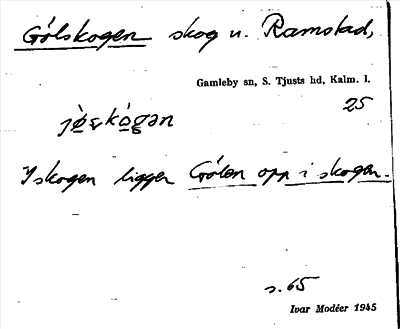 Gölskogen skog u. Ramstad,
Gamleby sn, S. Tjusts hd, Kalm. l.
25
I skogen ligger Gölen opp i skogen.
s. 65
Ivar Modéer 1945